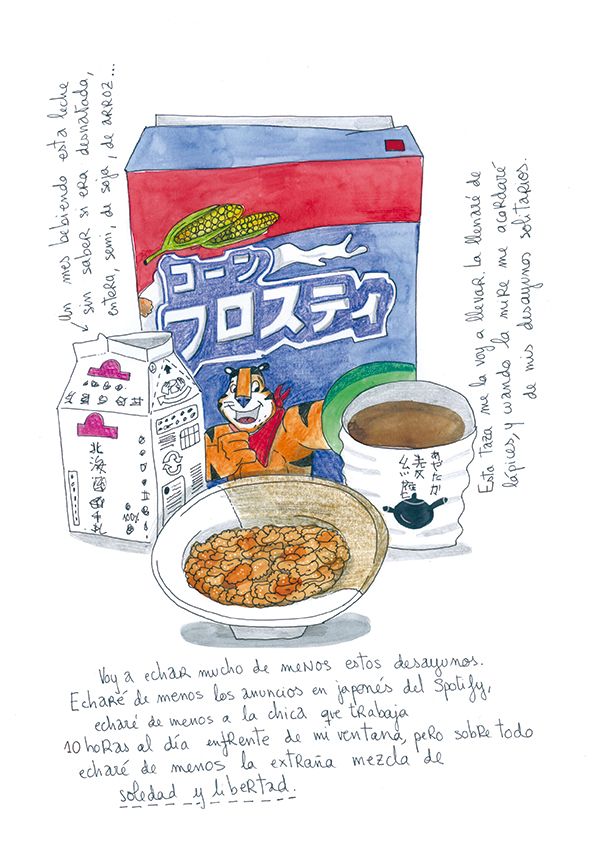 Un mes bebiendo esta leche
sin saber si era desnatada,
entera, semi, de soja, de arroz...
コーン
フロスティ
100%
あやたか
綾鷹
Esta taza me la voy a llevar. La llenaré de
lápices, y cuando la mire me acordaré
de mis desayunos solitarios.
Voy a echar mucho de menos estos desayunos.
Echaré de menos los anuncios en japonés del Spotify,
echaré de menos a la chica que trabaja
10 horas al día enfrente de mi ventana, pero sobre todo
echaré de menos la extraña mezcla de
soledad y libertad.